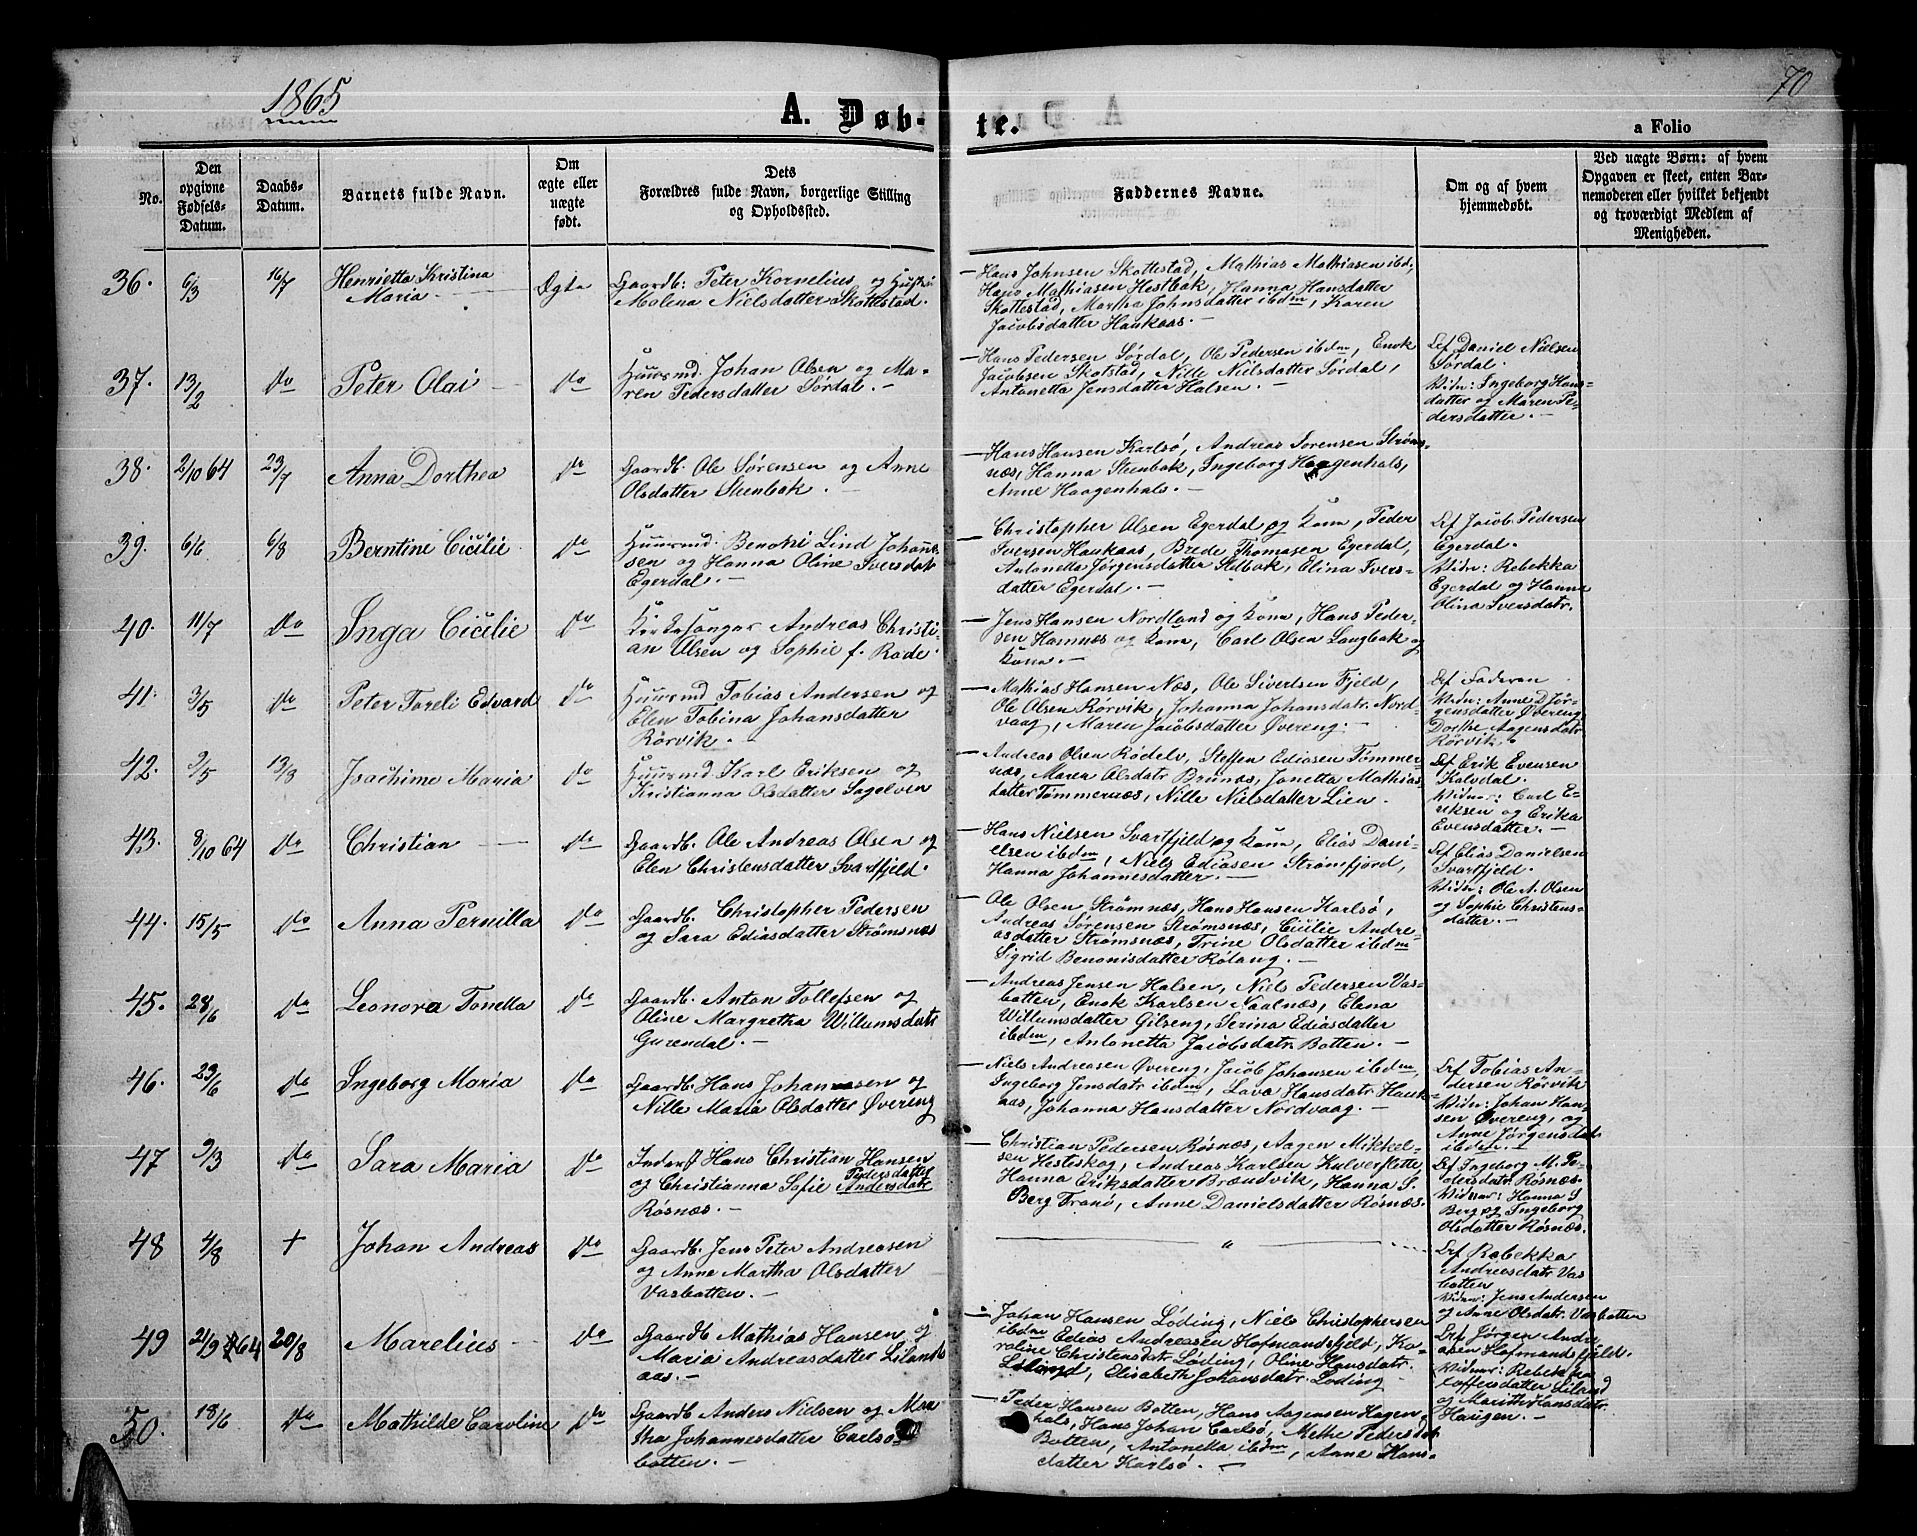 1865
70
A. Døb-
te.
a Folio
No.
Den
opgivne
Fødsels-
Datum.
Daabs-
Datum.
Barnets fulde Navn.
Om
ægte eller
uægte
født.
Dets
Forældres fulde Navn, borgerlige Stilling
og Opholdssted.
Faddernes Navne.
Om og af hvem
hjemmedøbt.
Ved uægte Børn: af hvem
Opgaven er skeet, enten Bar-
nemoderen eller hvilket bekjendt
og troværdigt Medlem af
Menigheden.
36. 6/3 16/7
Henrietta Kristina
Maria
Ægte
Gaardb: Peter Kornelius og Hustru
Malena Nielsdatter Skottestad.
Hans Johnsen Skottestad, Mathias Mathiasen ibd,
Hans Mathiasen Hestbak, Hanna Hansdatter
Skottestad, Martha Johnsdatter ibdm, Karen
Jacobsdatter Haukaas.
37. 13/2 Do
Peter Olai
Do
Huusmd. Johan Olsen og Ma-
ren Pedersdatter Sørdal.
Hans Pedersen Sørdal, Ole Pedersen ibdm, Enok
Jacobsen Skotstad, Nille Nielsdatter Sørdal,
Antonetta Jensdatter Halsen.
Daniel Nielsen
Sørdal.
Vidn: Ingeborg Hans-
datter og Maren Pe-
dersdatter.
38. 2/10 64 23/7
Anna Dorthea
Do
Gaardb. Ole Sørensen og Anne
Olsdatter Stenbak.
Hans Hansen Karlsø, Andreas Sørensen Strøms-
næs, Hanna Stenbak, Ingeborg Haagenhals,
Anne Haagenhals.
39. 6/6 6/8
Berntine Cicilie
Do
Huusmd. Benoni Lind Johann-
sen og Hanna Oline Iversdatr
Egerdal.
Christopher Olsen Egerdal og Kone, Peder
Iversen Haukaas, Brede Thomasen Egerdal,
Antonetta Jørgensdatter Selbak, Elina Ivers-
datter Egerdal.
Jacob Pedersen
Egerdal.
Vidn: Rebekka
Egerdal og Hanna
Olina Iversdatr.
40. 11/7 Do
Inga Cicilie
Do
Kirkesanger Andreas Christi-
an Olsen og Sophie f. Rode.
Jens Hansen Nordland og Kone, Hans Peder-
sen Hamnæs og Kone, Carl Olsen Langbak og
Kone.
41. 3/5 Do
Peter Toreli Edvard
Do
Huusmd Tobias Andersen og
Elen Tobina Johansdatter
Rörvik.
Mathias Hansen Næs, Ole Sivertsen Fjeld,
Ole Olsen Rörvik, Johanna Johansdatr Nord-
vaag, Maren Jacobsdatter Øvereng.
Faderen
Vidn: Anne D Jör-
gensdatter Øvereng,
Dorthe Aagensdatr
Rörvik.
42. 2/5 13/8
Joachime Maria
Do
Huusmd. Karl Eriksen og
Kristianna Olsdatter Sagelven
Andreas Olsen Rödelv, Steffen Ediasen Tømmer-
næs, Maren Olsdatr Brunæs, Janetta Mathias-
datter Tømmernæs, Nille Nielsdatter Lien.
Erik Evensen
Kalvdal.
Vidner: Carl E-
riksen og Erika
Evensdatter.
43. 8/10 64 Do
Christian
Do
Gaardb. Ole Andreas Olsen og
Elen Christensdatter Svartfjeld.
Hans Nielsen Svartfjeld og Kone, Elias Dani-
elsen ibdm, Niels Ediasen Strömfjord,
Hanna Johannesdatter.
Elias Danielsen
Svartfjeld.
Vidn: Ole A. Olsen
og Sophie Christens-
datter.
44. 15/5 Do
Anna Pernilla
Do
Gaardb. Christopher Pedersen
og Sara Ediasdatter Strømsnæs
Ole Olsen Strømnæs, Hans Hansen Karlsø,
Andreas Sørensen Strømsnæs, Cicilie Andre-
asdatter Strømsnæs, Trine Olsdatter ibdm
Sigrid Benonisdatter Rölang.
45. 28/6 Do
Leonora Tonetta
Do
Gaardb. Anton Tollefsen og
Oline Margretha Willumsdatr
Gurendal.
Andreas Jensen Halsen, Niels Pedersen Vas-
botten, Enok Karlsen Naalnæs, Elena
Willumsdatter Gilseng, Serina Ediasdatter
ibdm, Antonetta Jacobsdatr Botten.
46. 23/6 Do
Ingeborg Maria
Do
Gaardb. Hans Johannesen og
Nille Maria Olsdatter Øvereng
Niels Andreasen Øvereng, Jacob Johansen ibdm,
Ingeborg Jensdatr ibdm, Lava Hansdatr Hauk-
aas, Johanna Hansdatter Nordvaag.
Tobias An-
dersen Rörvik
Vidn: Johan Han-
sen Øvereng, og
Anne Jørgensdatr
ibdm.
47 2/3 Do
Sara Maria
Do
Inderst Hans Christian Hansen
Pedersdatter
og Christianna Sofie Andersdatr
Røsnæs.
Christian Pedersen Røsnæs, Aagen Mikkel-
sen Hesteskog, Andreas Karlsen Kalverflette,
Hanna Eriksdatter Brændvik, Hanna S.
Berg Tranö, Anne Danielsdatter Røsnæs.
Ingeborg M. Pe-
dersdatr Røsnæs.
Vidner: Hanna S
Berg og Ingeborg
Olsdatter Røsnæs.
48 4/8 +
Johan Andreas
Do
Gaardb. Jens Peter Andreasen
og Anne Martha Olsdatter
Vasbotten.
"
Rebekka
Andreasdatr Vas-
botten
Vidner: Jens Andersen
og Anne Olsdatr Vasbotten
49 21/9 64 20/8
Marelius
Do
Gaardb Mathias Hansen og
Maria Andreasdatter Lilands-
aas.
Johan Hansen Løding, Niels Christophersen
ibdm Edias Andreasen Hofmandsfjeld, Ka-
roline Christensdatr Løding, Oline Hansdatr.
Løding, Elisabeth Johansdatr. Løding
Jørgen Andre-
asen Hofmandsfjeld.
Vidner: Rebekka
Toffersdatter Liland
og Marith Hansdatr
Haugen.
50. 18/6 Do
Mathilde Caroline
Do
Gaardb Anders Nielsen og Mar-
tha Johannesdatter Carlsö
botten.
Peder Hansen Botten, Hans Aagensen Hagen-
hals, Hans Johan Carlsö, Methe Pedersdatr
Botten, Antonetta ibdm, Anne Hans-
datter Karlsö.